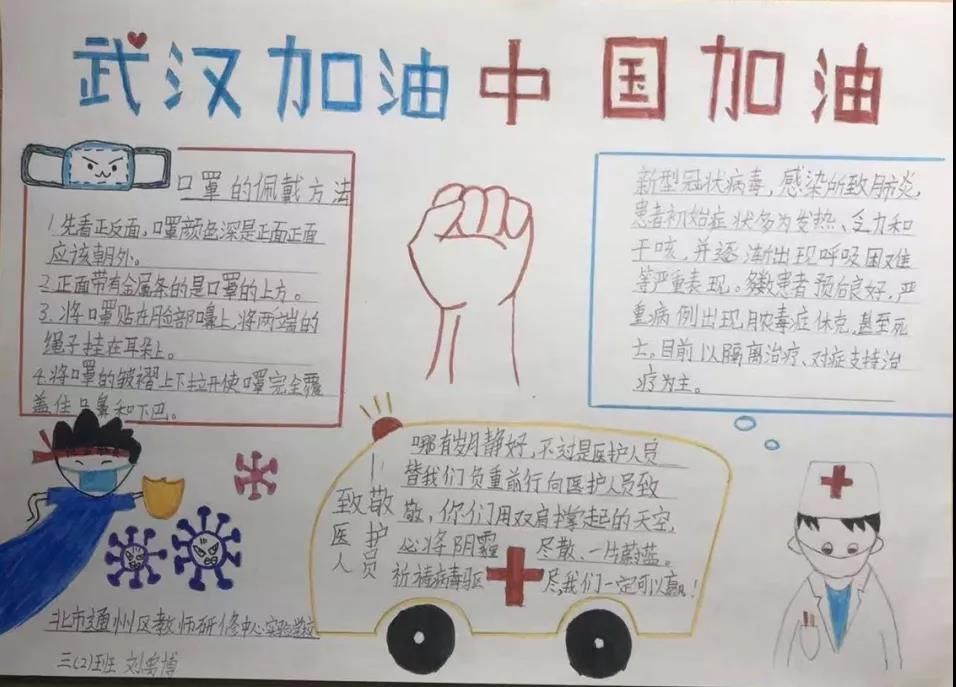 武汉加油中国加油
口罩的佩戴方法
1.先看正反面,口罩颜色深是正面正面
应该朝外。
2.正面带有金属条的是口罩的上方。
3.将口罩贴在脸部嘴上,将两端的
绳子挂在耳朵上。
4.将口罩的皱褶上下拉开使口罩完全覆
盖住口鼻和下巴。
新型冠状病毒,感染所致肺炎,
患者初始症状多为发热、乏力和
干咳,并逐渐出现呼吸困难
等严重表现。多数患者预后良好,严
重病例出现脓毒症休克,甚至死
亡。目前以隔离治疗、对症支持治
疗为主。
致敬
医护
人员
哪有岁月静好,不过是医护人员
皆我们负重前行向医护人员致
敬,你们用双肩撑起的天空,
必将阴霾尽散、一片蔚蓝。
祈祷病毒驱尽,我们一定可以赢!
北市通州区教师研修中心实验学校
三(2)班 刘禹博